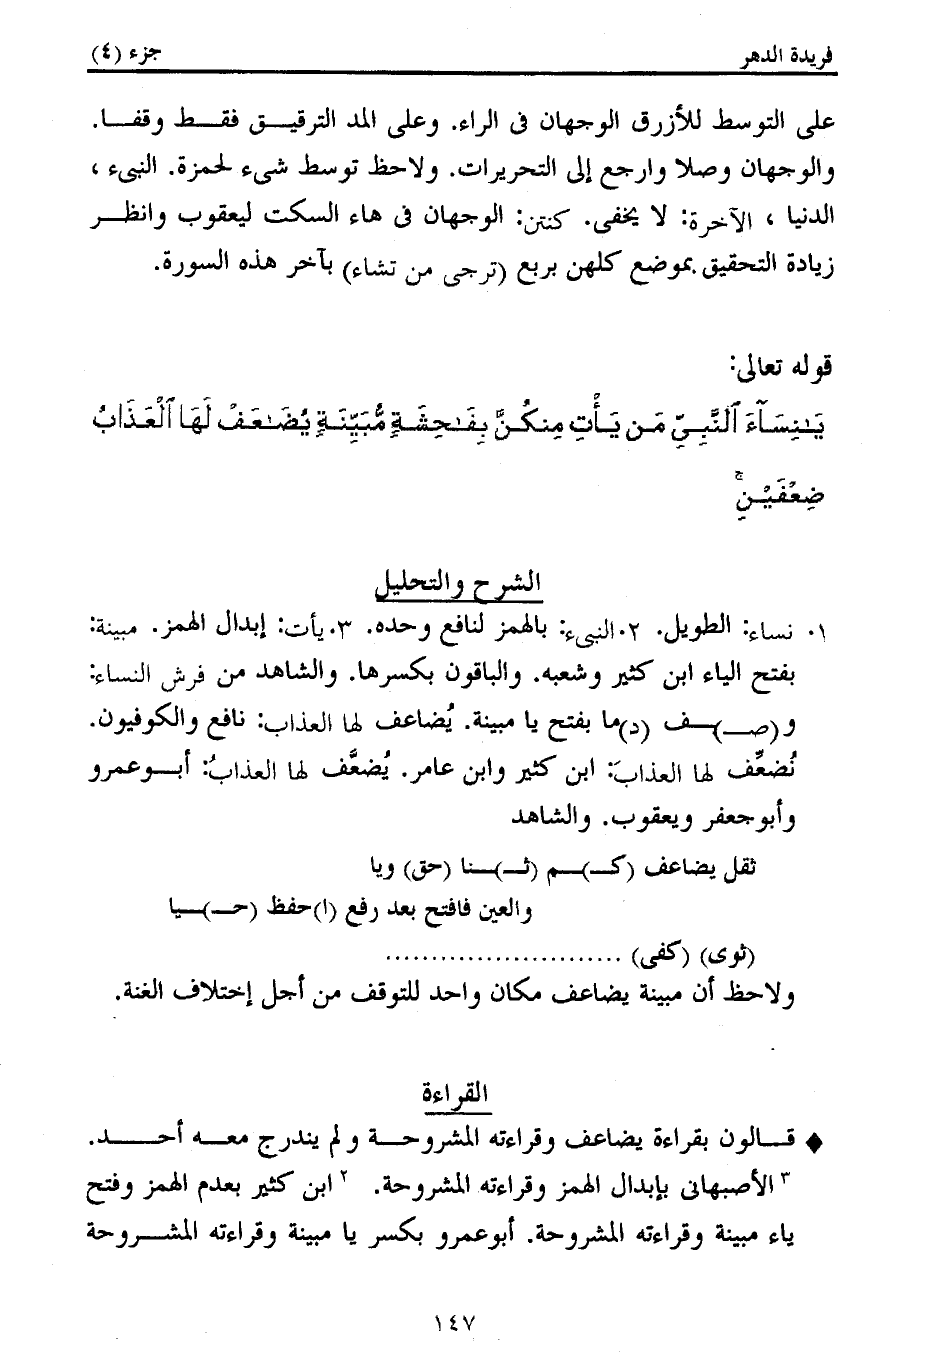 فريدة الدهر
جزء (٤)
على التوسط للأزرق الوجهان فى الراء. وعلى المد الترقيق فقط وقفا.
والوجهان وصلا وارجع إلى التحريرات. ولاحظ توسط شىء لحمزة. النبىء ،
الدنيا ، الآخرة: لا يخفى. كنتن: الوجهان فى هاء السكت ليعقوب وانظر
زيادة التحقيق بموضع كلهن بربع (ترجى من تشاء) بآخر هذه السورة.
قوله تعالى:
يَـٰنِسَآءَ ٱلنَّبِىِّ مَن يَأْتِ مِنكُنَّ بِفَـٰحِشَةٍ مُّبَيِّنَةٍ يُضَـٰعَفْ لَهَا ٱلْعَذَابُ
ضِعْفَيْنِ ۚ
الشرح والتحليل
١. نساء: الطويل. ٢. النبىء: بالهمز لنافع وحده. ٣. يأت: إبدال الهمز. مبينة:
بفتح الياء ابن كثير وشعبه. والباقون بكسرها. والشاهد من فرش النساء:
و(صـ)ـف (د)ما بفتح يا مبينة. يُضاعف لها العذاب: نافع والكوفيون.
نُضعِّف لها العذابَ: ابن كثير وابن عامر. يُضعَّف لها العذابُ: أبوعمرو
وأبوجعفر ويعقوب. والشاهد
ثقل يضاعف (كـ)ـم (ثـ)ـنا (حق) ويا
والعين فافتح بعد رفع (ا)حفظ (حـ)ـيا
(ثوى) (كفى) ..........................
ولاحظ أن مبينة يضاعف مكان واحد للتوقف من أجل إختلاف الغنة.
القراءة
♦ قـالون بقراءة يضاعف وقراءته المشروحة و لم يندرج معه أحد.
٣ الأصبهانى بإبدال الهمز وقراءته المشروحة. ٢ ابن كثير بعدم الهمز وفتح
ياء مبينة وقراءته المشروحة. أبوعمرو بكسر يا مبينة وقراءته المشروحة
١٤٧